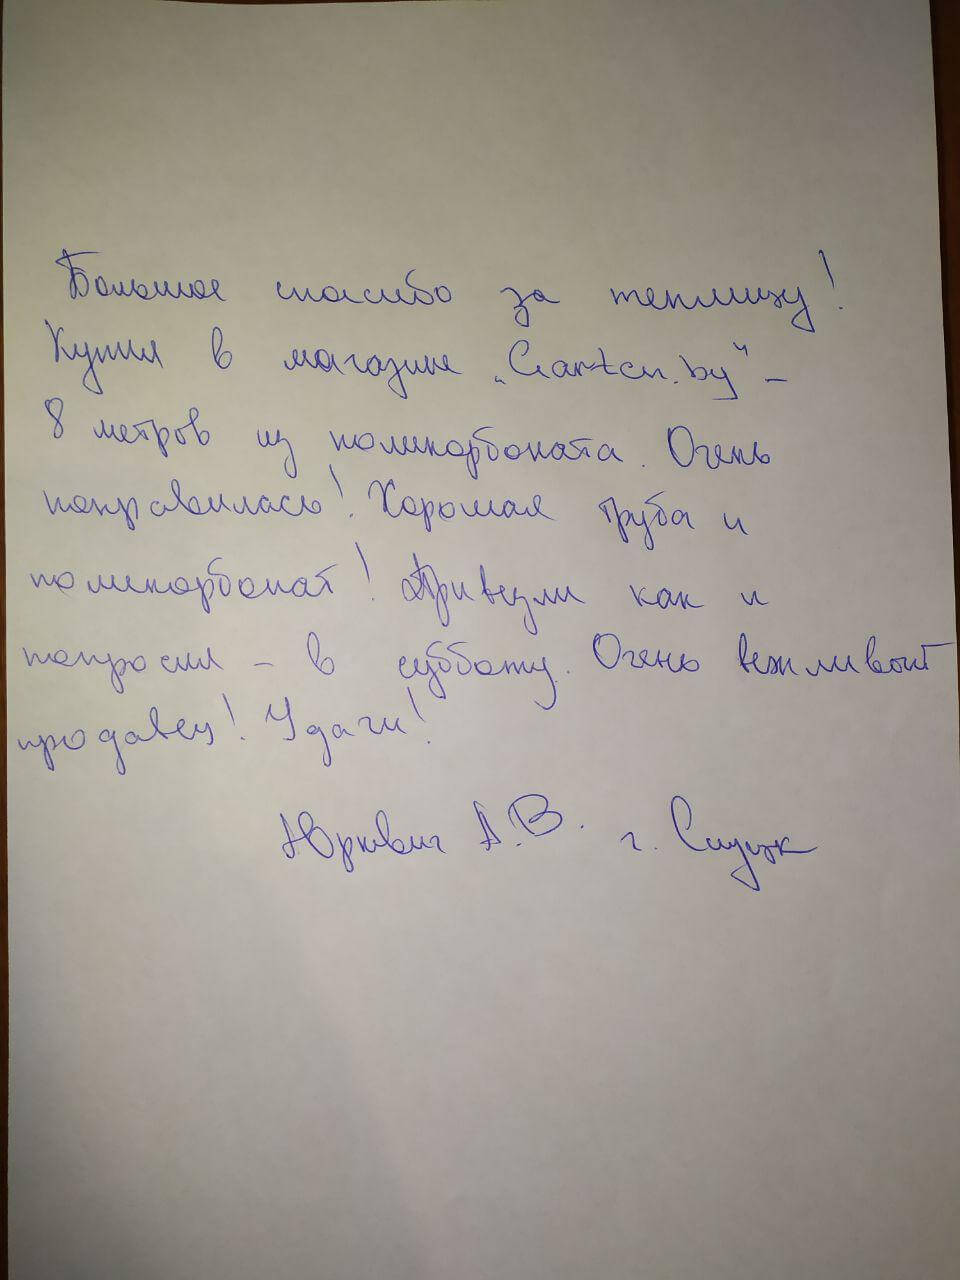 Большое спасибо за теплицу!
Купил в магазине „Garten.by" –
8 метров из поликарбоната. Очень
понравилась! Хорошая труба и
поликарбонат! Привезли как и
попросил – в субботу. Очень вежливый
продавец! Удачи!
Юркевич А.В. г. Слуцк